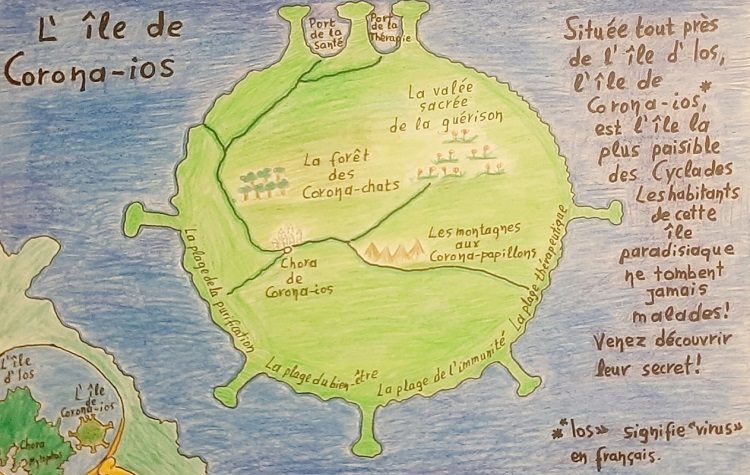 L' île de
Corona-ios
Port
de la
Santé
Port
de la
Thérapie
La valée
sacrée
de la guérison
La forêt
des
Corona-chats
Les montagnes
aux
Corona-papillons
Chora
de
Corona-ios
La plage de la purification
La plage du bien-être
La plage de l'immunité
La plage thérapeutique
Située tout près
de l' île d' Ios,
l'île de *
Corona-ios,
est l'île la
plus paisible
des Cyclades
Les habitants
de cette
île
paradisiaque
ne tombent
jamais
malades!
Venez découvrir
leur secret!
*"Ios» signifie "virus"
en français.
L'île
d' Ios
L'île
de
Corona-ios
Chora
Mylopotas